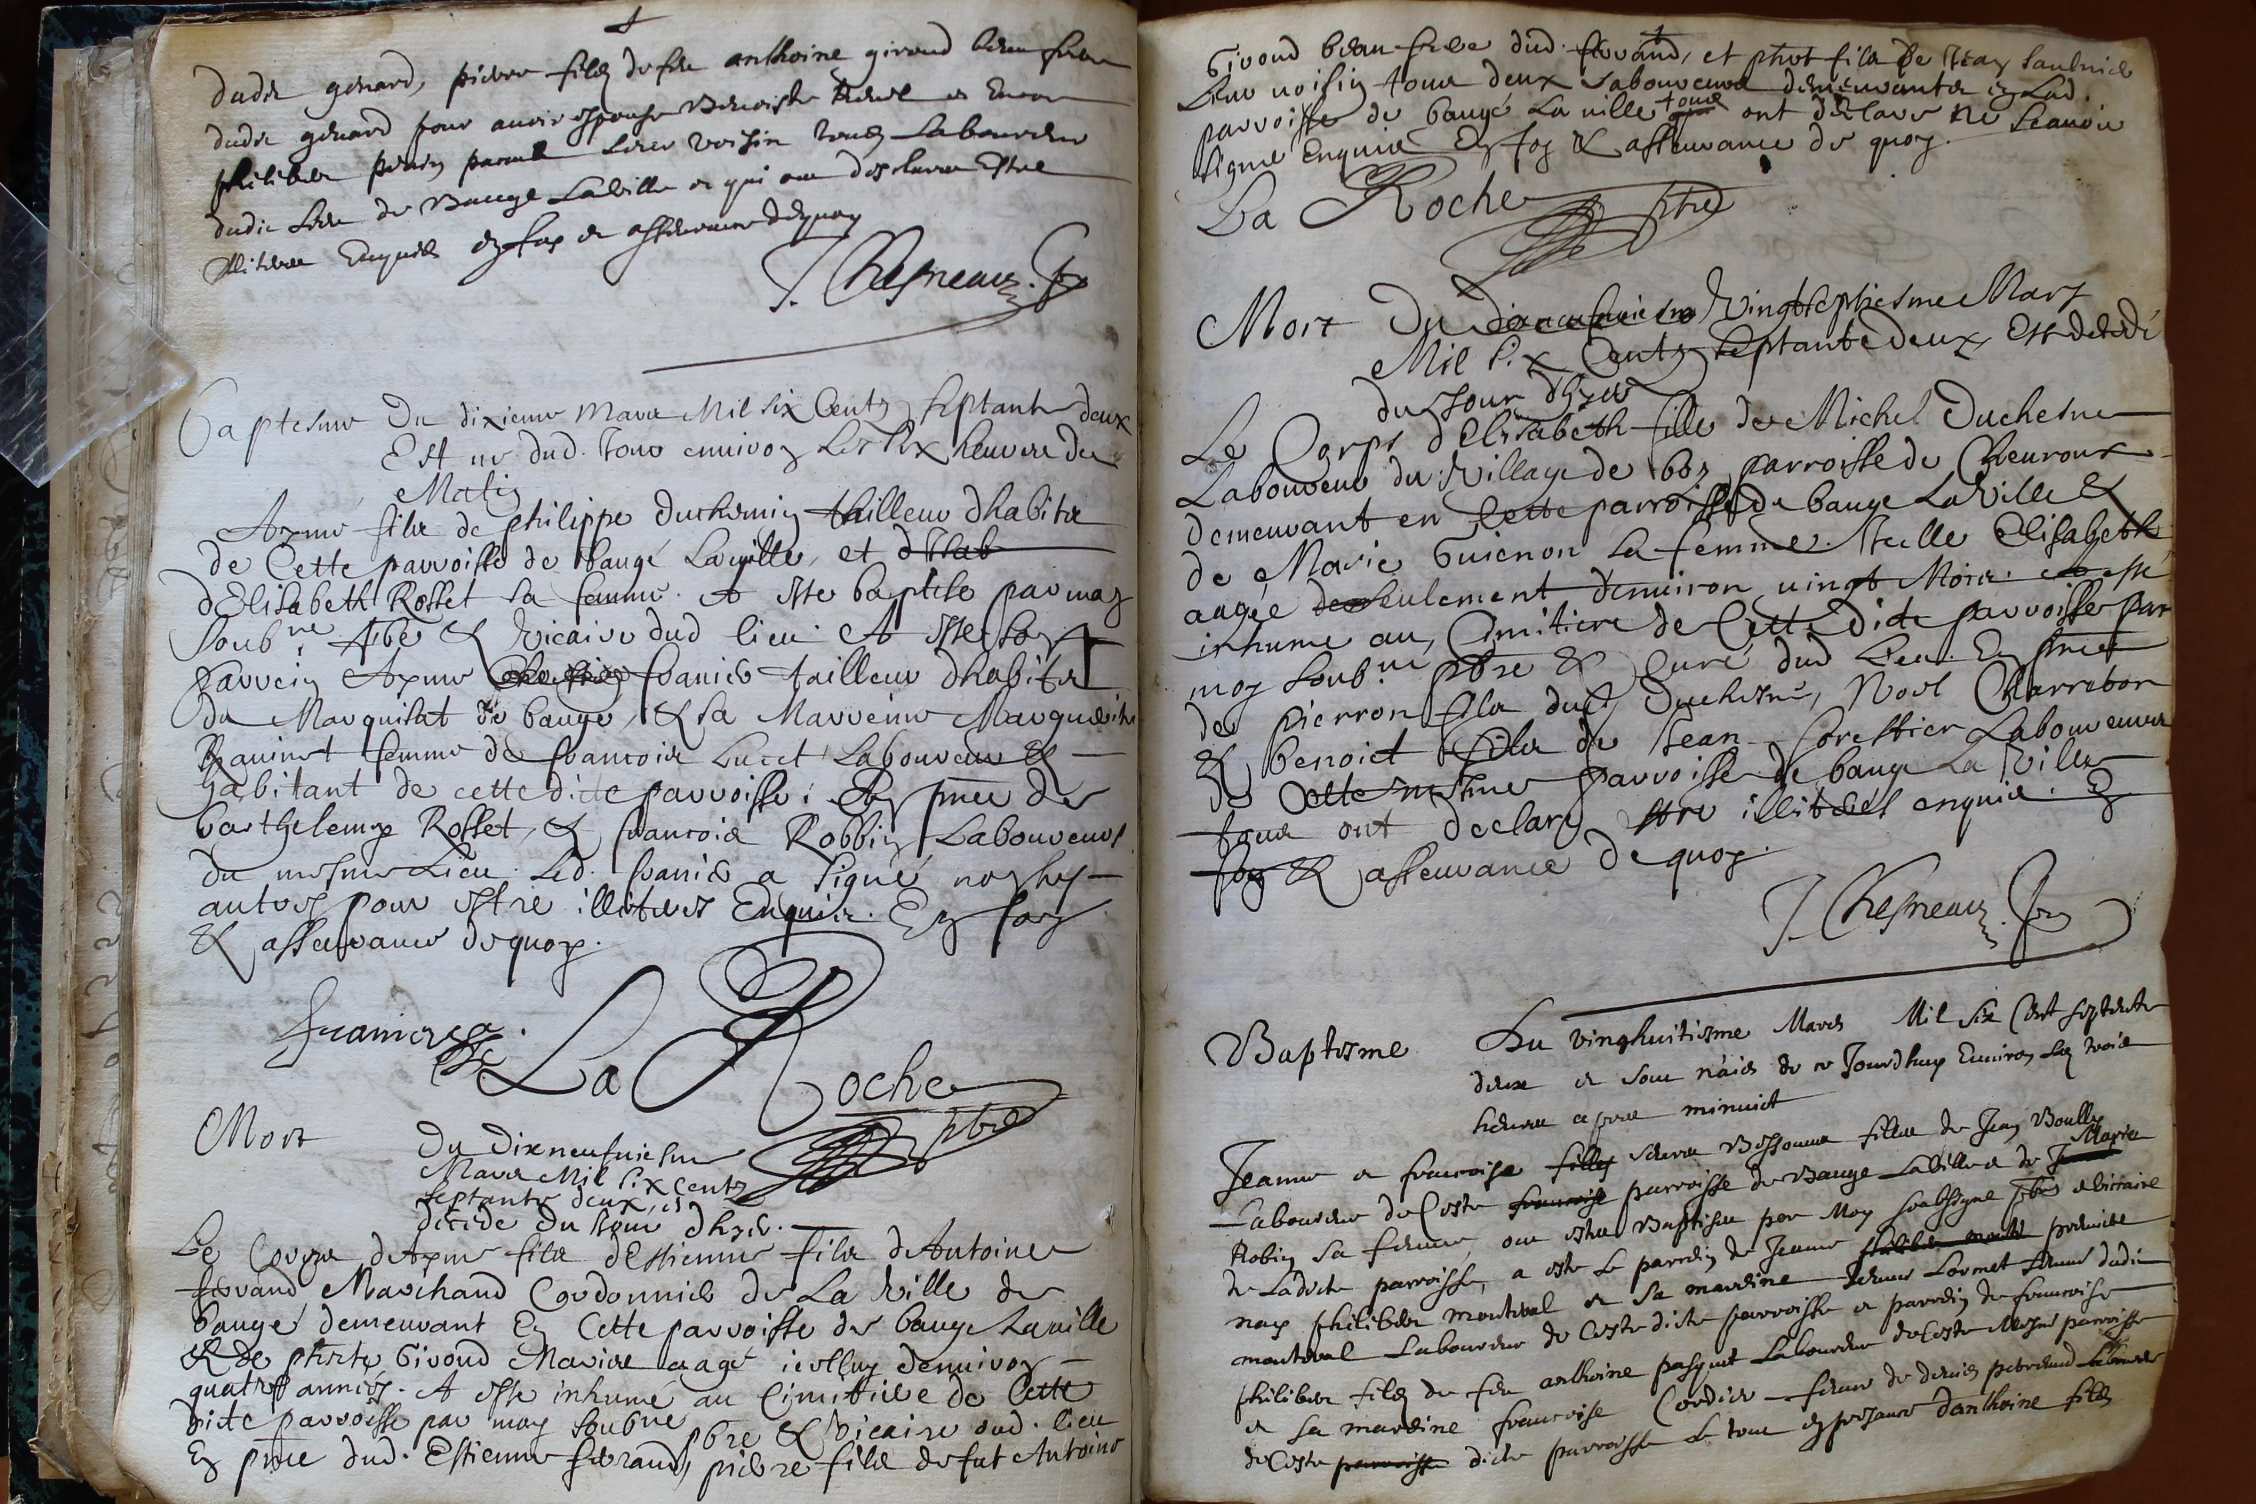 dudit genard, pierre filz de feu anthoine giroud beau frere
dudit genard pour auoir espouse Benoiste et Encor
philiber perrin parent Leur voisin tous Laboureur
dudit Lieu de Baugé Laville et qui ont desclaré Estre
illiteres Enquis en foy et asseurance dequoy
J. Chesneauz.
Baptesme Du dixieme Mars Mil six Centz septante deux
Est né dud. Jour enuiron Les six heures du
Matin
Aymé filz de philippe Duchemin tailleur dhabitz
de Cette parroisse de baugé Laville, et
d'Elisabeth Rosset sa femme. A esté baptisé par moy
Soub.né pbre & vicaire dud lieu. A esté son
parrein Aymé franier tailleur dhabitz
du Marquisat de baugé, & sa Marreine Marguerite
Rauinet femme de francois Lucet Laboureur &
habitant de cette dicte parroisse. En pnce de
barthelemy Rosset, & francois Robbin Laboureurs
du mesme Lieu. Led. franier a signé non les
autres pour estre illiteres Enquis. En foy
& asseurance de quoy.
franier
La Roche pbre
Mort Du Dixneufuiesme
Mars Mil six Centz
septante deux, est
décédé du Jour dhyer.
Le Corps d'Aymé filz d'Estienne filz d'Antoine
ferrand Marchand Cordonnier de La Ville de
baugé demeurant En Cette parroisse de bauge Laville
& de Giroud Mariés aagé icelluy denuiron
quatre années. A esté inhumé au Cimittiere de Cette
dicte parroisse par moy soub.né pbre & vicaire dud. lieu
En pnce dud. Estienne ferrand, pierre filz de fut Antoine
Giroud beau-frere dud. ferrand, et phbt filz de Jean Saulnier
Leur voisin tous deux Laboureurs demeurantz en Lad.
parroisse de baugé La ville tous ont déclaré ne scauoir
signer Enquis En foy & asseurance de quoy.
La Roche pbre
Mort Du Dixneufuiesme Vingtseptiesme Mars
Mil six Centz septante Deux, Est décédé
du Jour d'hyer
Le Corps d'Elisabeth fille de Michel Duchesne
Laboureur du Village de boz parroisse de Cheuroux
demeurant en Cette parroisse de bauge La Ville &
de Marie Guienon sa femme. Icelle Elisabeth
aagée seulement denuiron vingt Mois. A esté
inhumé au Cimitiere de Cette Dicte parroisse par
moy soub.né pbre & Curé dud Lieu. En pnce
de pierron filz dud Duchesne, Noel Charreton
& benoict filz de Jean Forestier Laboureurs
de Cette mesme parroisse de bauge La Ville
tous ont declaré estre illiteres enquis. En
foy & asseurance de quoy.
J. Chesneauz.
Baptesme Du vinghuitiesme Mars Mil six Cent septante
deux et sont naiés de ce Jourdhuy Enuiron Les trois
heures apres minuict
Jeanne et francoise filles seurs Bessonnes filles de Jean Boully
Laboureur de Ceste francoise parroisse de Bauge LaVille et de Marie
Robin sa femme, ont estés Baptisés par Moy soubsigné pbre et vicaire
de Ladicte parroisse, a esté Le parrein de Jeanne premiere
nay philiber monteval et sa marreine Jeanne Lormet femme dudit
monteval Laboureur de Ceste dicte parroisse et parrein de francoise
philiber filz de feu anthoine pasquet Laboureur de Ceste Mesme parroisse
et sa marreine francoise Cordier femme de denis Laboureur
de Ceste parroisse dicte parroisse Le tout en presance danthoine filz